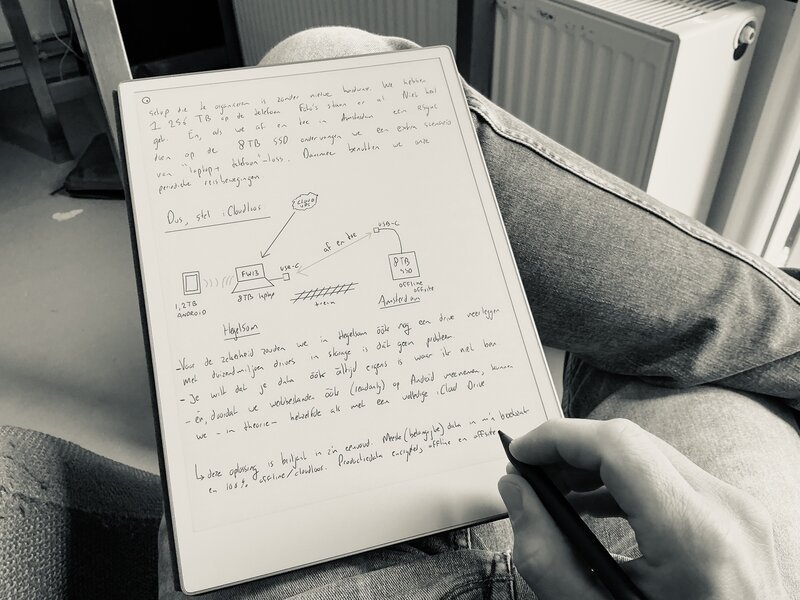 setup die te organiseren is zonder nieuwe hardware. We hebben
1 256 TB op de telefoon Foto's staan er al Niet heel
gek. En, als we af en toe in Amsterdam een rsync
doen op de 8TB SSD ondervangen we een extra scenario
van "laptop + telefoon"-loss. Daarmee benutten we onze
periodieke reisbewegingen
Dus, stel iCloudloos
1,2TB
ANDROID
FW13
8TB laptop
USB-C
af en toe
trein
USB-C
8TB
SSD
OFFLINE
offsite
Amsterdam
Heylsom
- Voor de zekerheid zouden we in Heylsom óók nog een drive neerleggen
met duizend miljoen drives in storage is dat geen probleem
- Je wilt dat je data óók áltijd ergens is waar ik niet ben
- én, doordat we werkbestanden óók (readonly) op Android meenemen, kunnen
we - in theorie - hetzelfde als met een volledige iCloud Drive
↳ deze oplossing is briljant in z'n eenvoud. Meeste (belangrijke) data in m'n broekzak
en 100% offline/cloudloos. Productiedata encrypted, offline en offsite